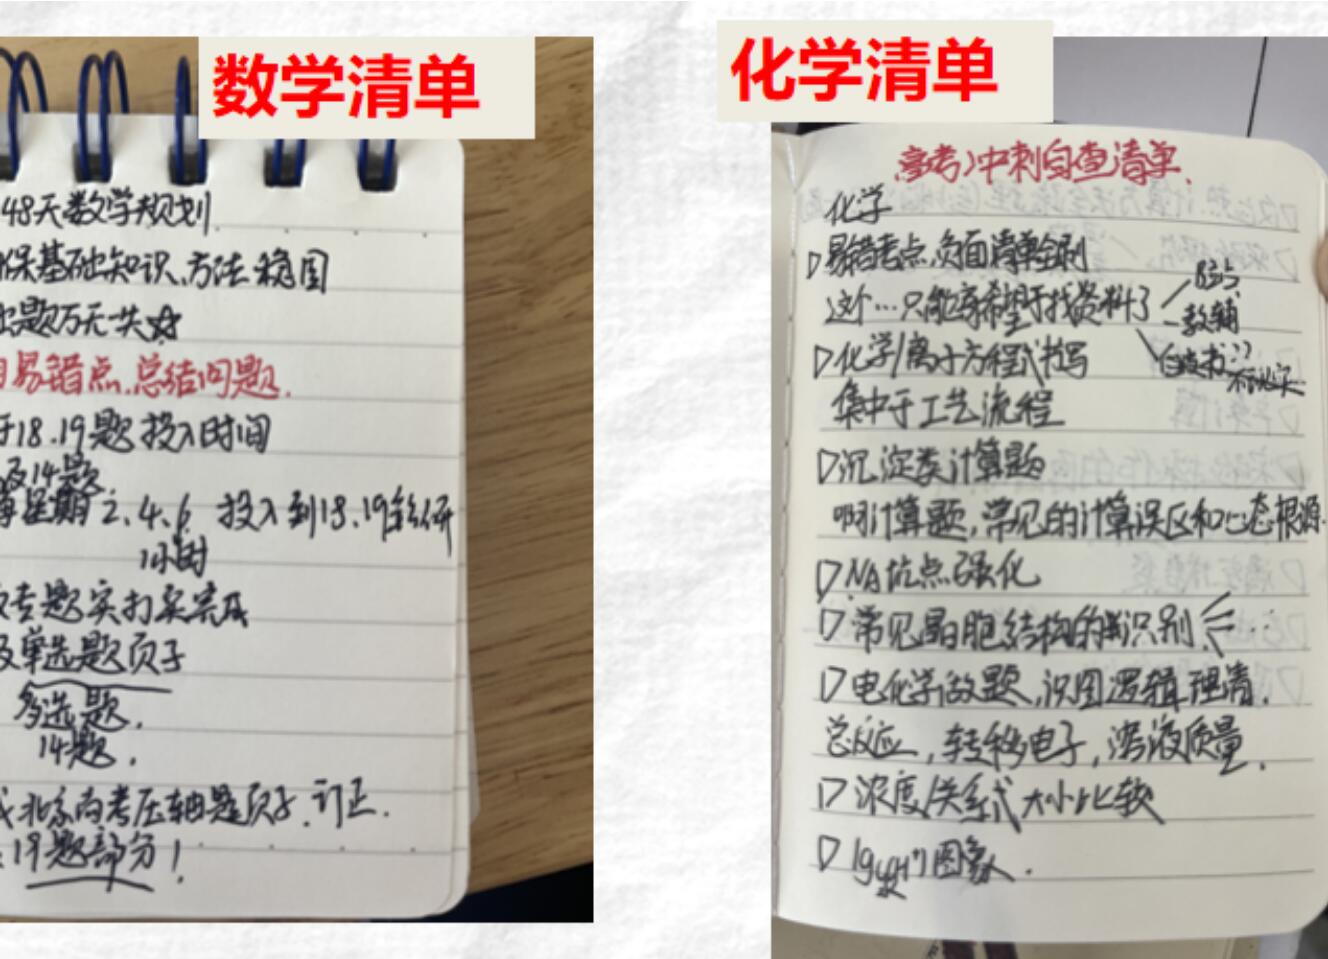 数学清单
48天数学规划
保基础知识、方法稳固
题万无一失☆
易错点、总结问题.
于18.19题投入时间
及14题
每星期2.4.6. 投入到18.19钻研
1小时
专题实打实完成
及单选题页子
多选题.
14题.
北京高考压轴题页子.订正.
19题部分!
化学清单
高考冲刺自查清单.
化学
易错考点,负面清单全刷
这个…只能寄希望于找资料了
教辅
白皮书??
化学/离子方程式书写
集中于工艺流程
沉淀类计算题
啊计算题,常见的计算误区和心态根源.
NA坑点强化
常见晶胞结构的识别
电化学做题,识图逻辑理清.
总反应,转移电子,溶液质量.
浓度/关系式大小比较
图象.